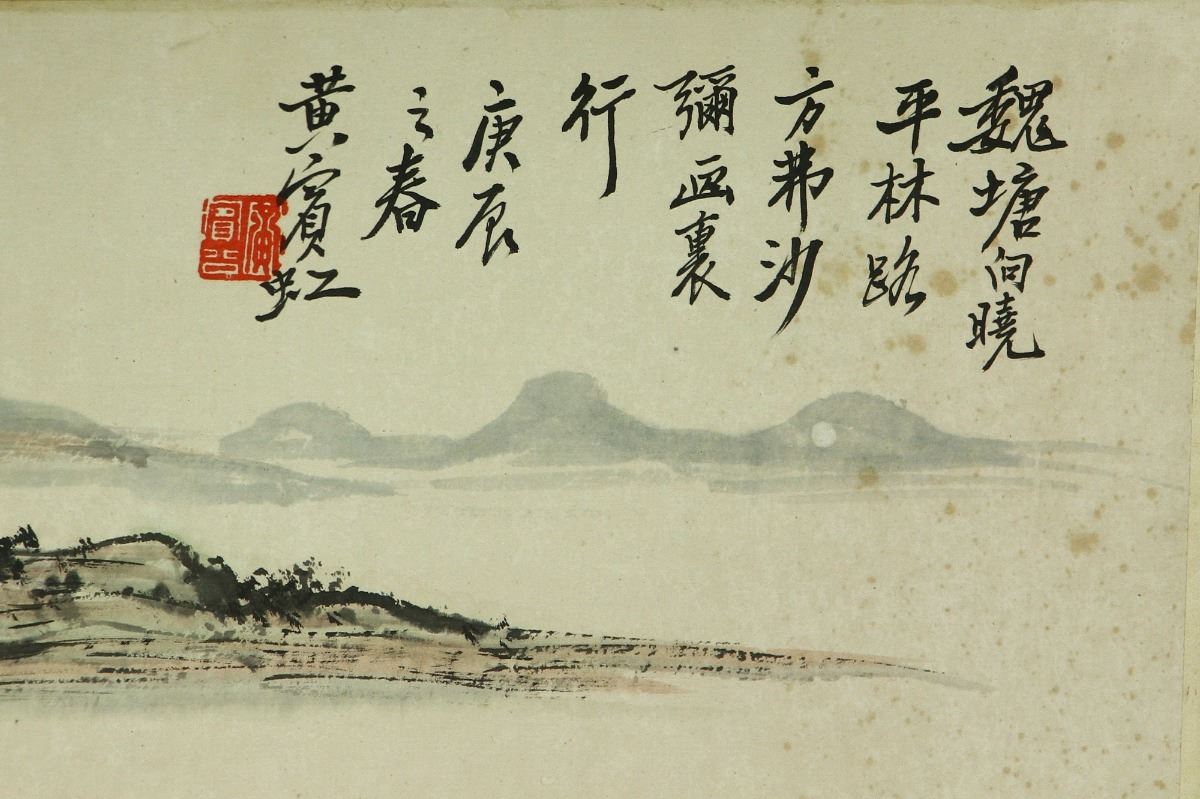 魏塘向曉
平林路
方弗沙
彌画裏
行
庚辰
之春
黃賓虹